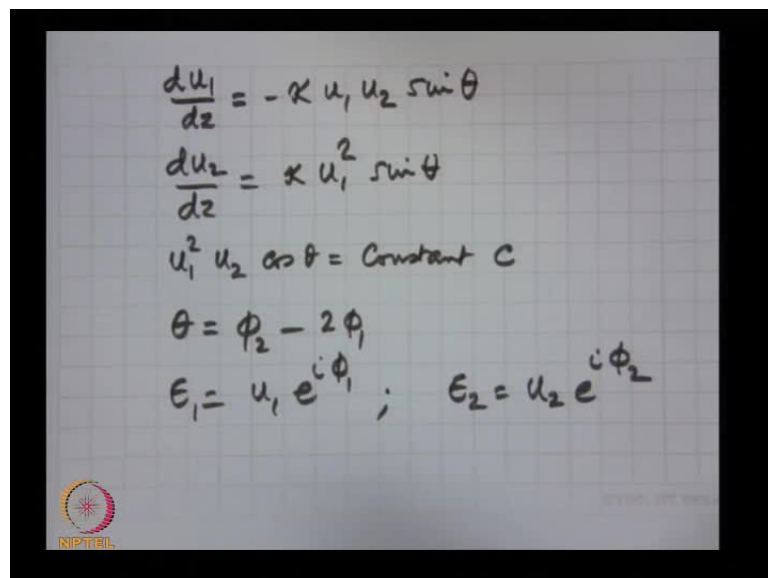 du₁/dz = - κ u₁ u₂ sin θ
du₂/dz = κ u₁² sin θ
u₁² u₂ cos θ = Constant C
θ = φ₂ - 2φ₁
ε₁ = u₁ e^{iφ₁} ; ε₂ = u₂ e^{iφ₂}
NPTEL